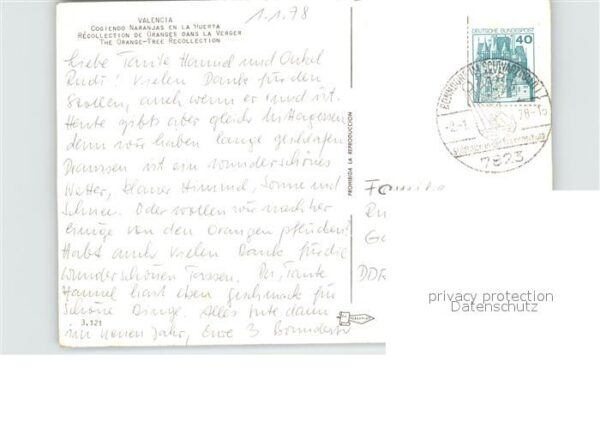 VALENCIA
COGIENDO NARANJAS EN LA HUERTA
RÉCOLLECTION DE ORANGES DANS LA VERGER
THE ORANGE-TREE RECOLLECTION
1.1.78
Liebe Tante Hannel und Onkel
Rudi! Vielen Dank für den
Stollen, auch wenn er rund ist.
Heute gibts aber gleich Mittagessen
denn wir haben lange geschlafen
Draussen ist ein wunderschönes
Wetter, blauer Himmel, Sonne und
Schnee. Oder wollen wir nachher
einige von den Orangen pflücken?
Habt auch vielen Dank für die
wunderschönen Tassen. Du, Tante
Hannel hast eben Geschmack für
schöne Dinge. Alles Gute dann
im neuen Jahr, Eure 3
3.121
PROHIBIDA LA REPRODUCCION
DEUTSCHE BUNDESPOST
40
-2.-1.
78-15
7823
Familie
Ru
DDR
privacy protection
Datenschutz